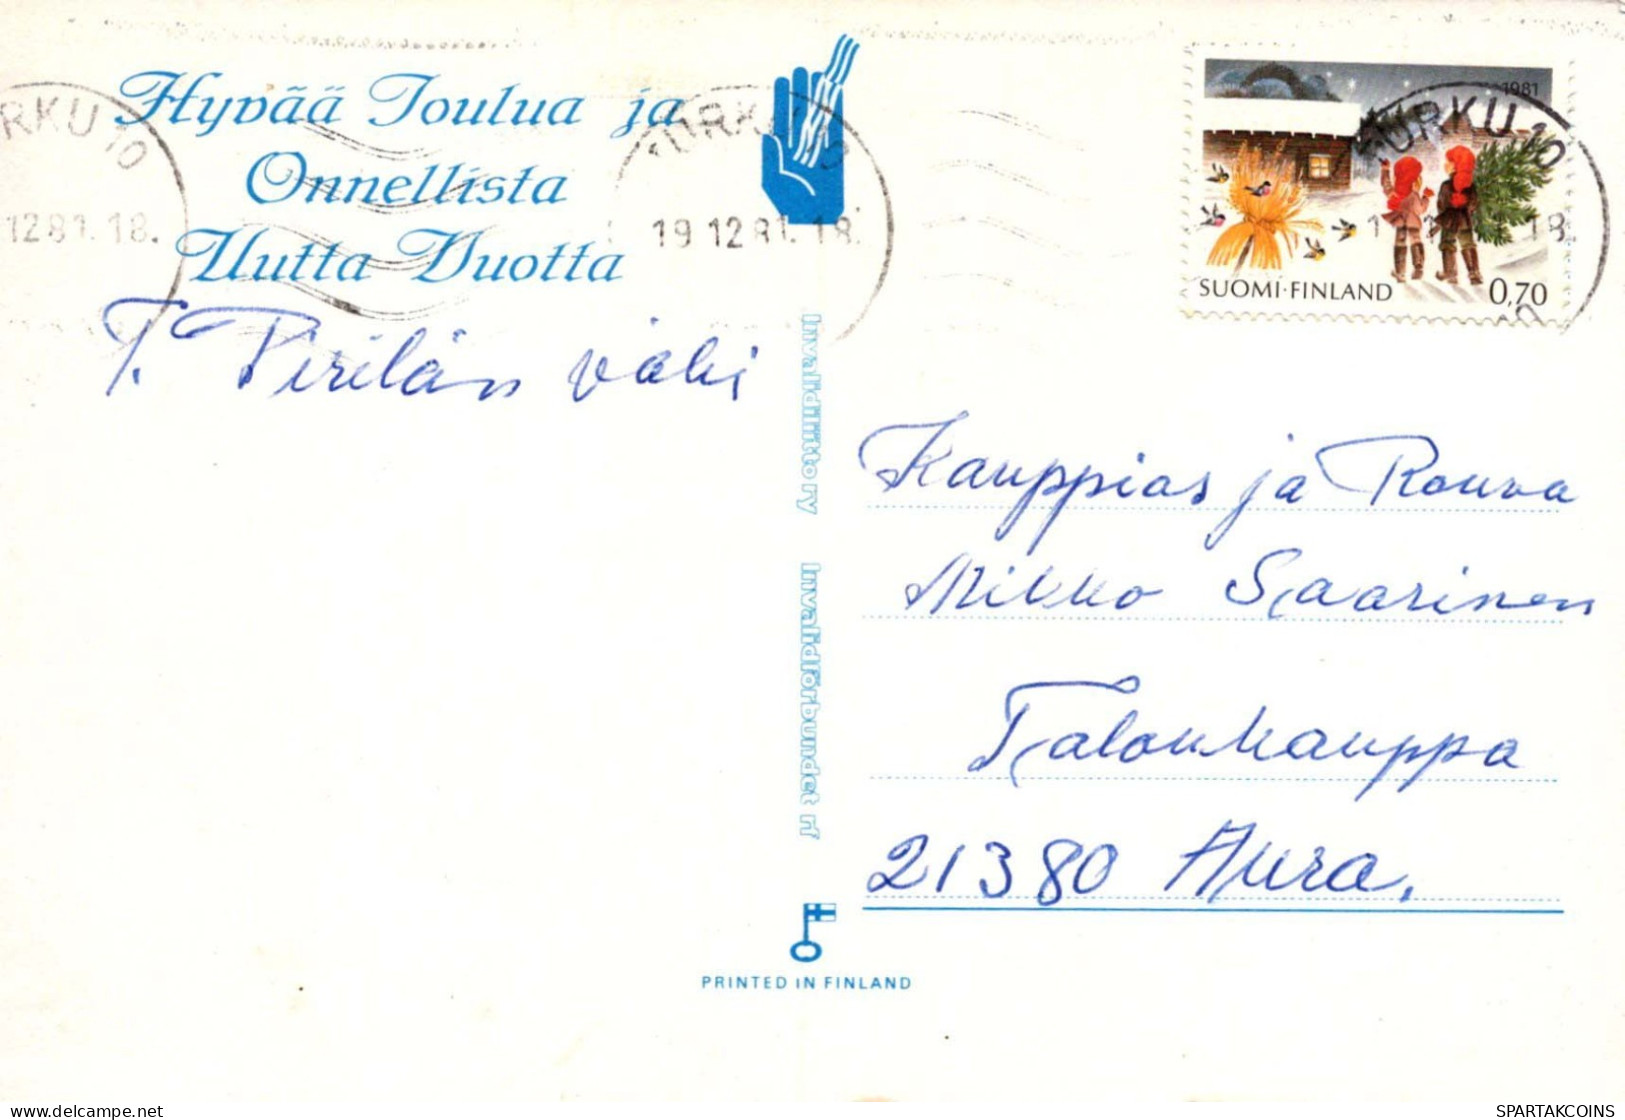 Hyvää Joulua ja
Onnellista
Uutta Vuotta
T. Pirilän väki
TURKU 10
12 81. 18.
TURKU 10
19 12 81. 18.
1981
TURKU 10
18.
SUOMI·FINLAND 0,70
Invalidiliitto ry
Invalidförbundet rf
Kauppias ja Rouva
Mikko Saarinen
Talonkauppa
21380 Aura.
PRINTED IN FINLAND
delcampe.net
SPARTAKCOINS